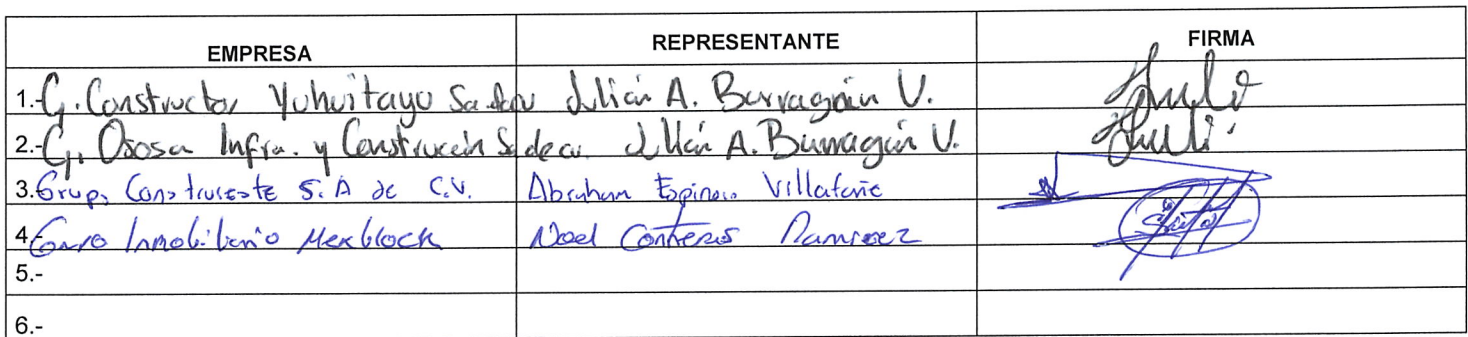 EMPRESA REPRESENTANTE FIRMA
1.- G. Constructor Yuhuitayo Sa de cv Julián A. Barragán V.
2.- G. Ososa Infra. y Construcción Sa de cv. Julián A. Barragán V.
3. Grupo Construceste S.A de C.V. Abraham Espinosa Villafañe
4. Inmobiliario Mexblock Noel Contreras Ramirez
5.-
6.-